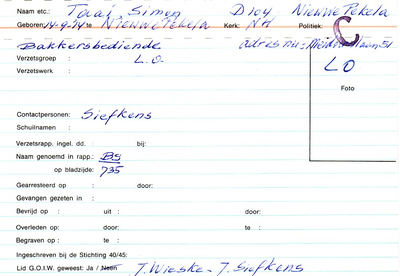 Naam etc.: Tuai, Simon Nieuwe Pekela
Geboren: 14-9-24 te Nieuwe Pekela Kerk: NH Politiek: C
Bakkersbediende adres nu:
Verzetsgroep : L.O. LO
Verzetswerk :
Foto
Contactpersonen: Siefkens
Schuilnamen :
Verzetsrapp. ingel. dd. : bij:
Naam genoemd in rapp.: BS
op bladzijde: 735
Gearresteerd op : door:
Gevangen gezeten in :
Bevrijd op : uit : door:
Overleden op: door: te :
Begraven op : te :
Ingeschreven bij de Stichting 40/45:
Lid G.O.I.W. geweest: Ja / Neen T. Wieske - J. Siefkens